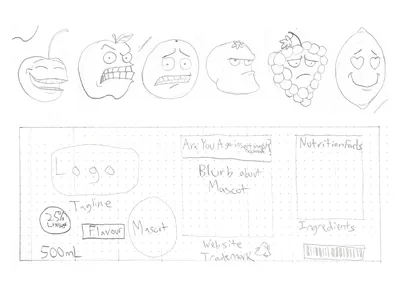 Logo
Tagline
25%
Flavour
Mascot
500mL
Are You A
Blurb about
Mascot
Website
Trademark
Nutrition Facts
Ingredients